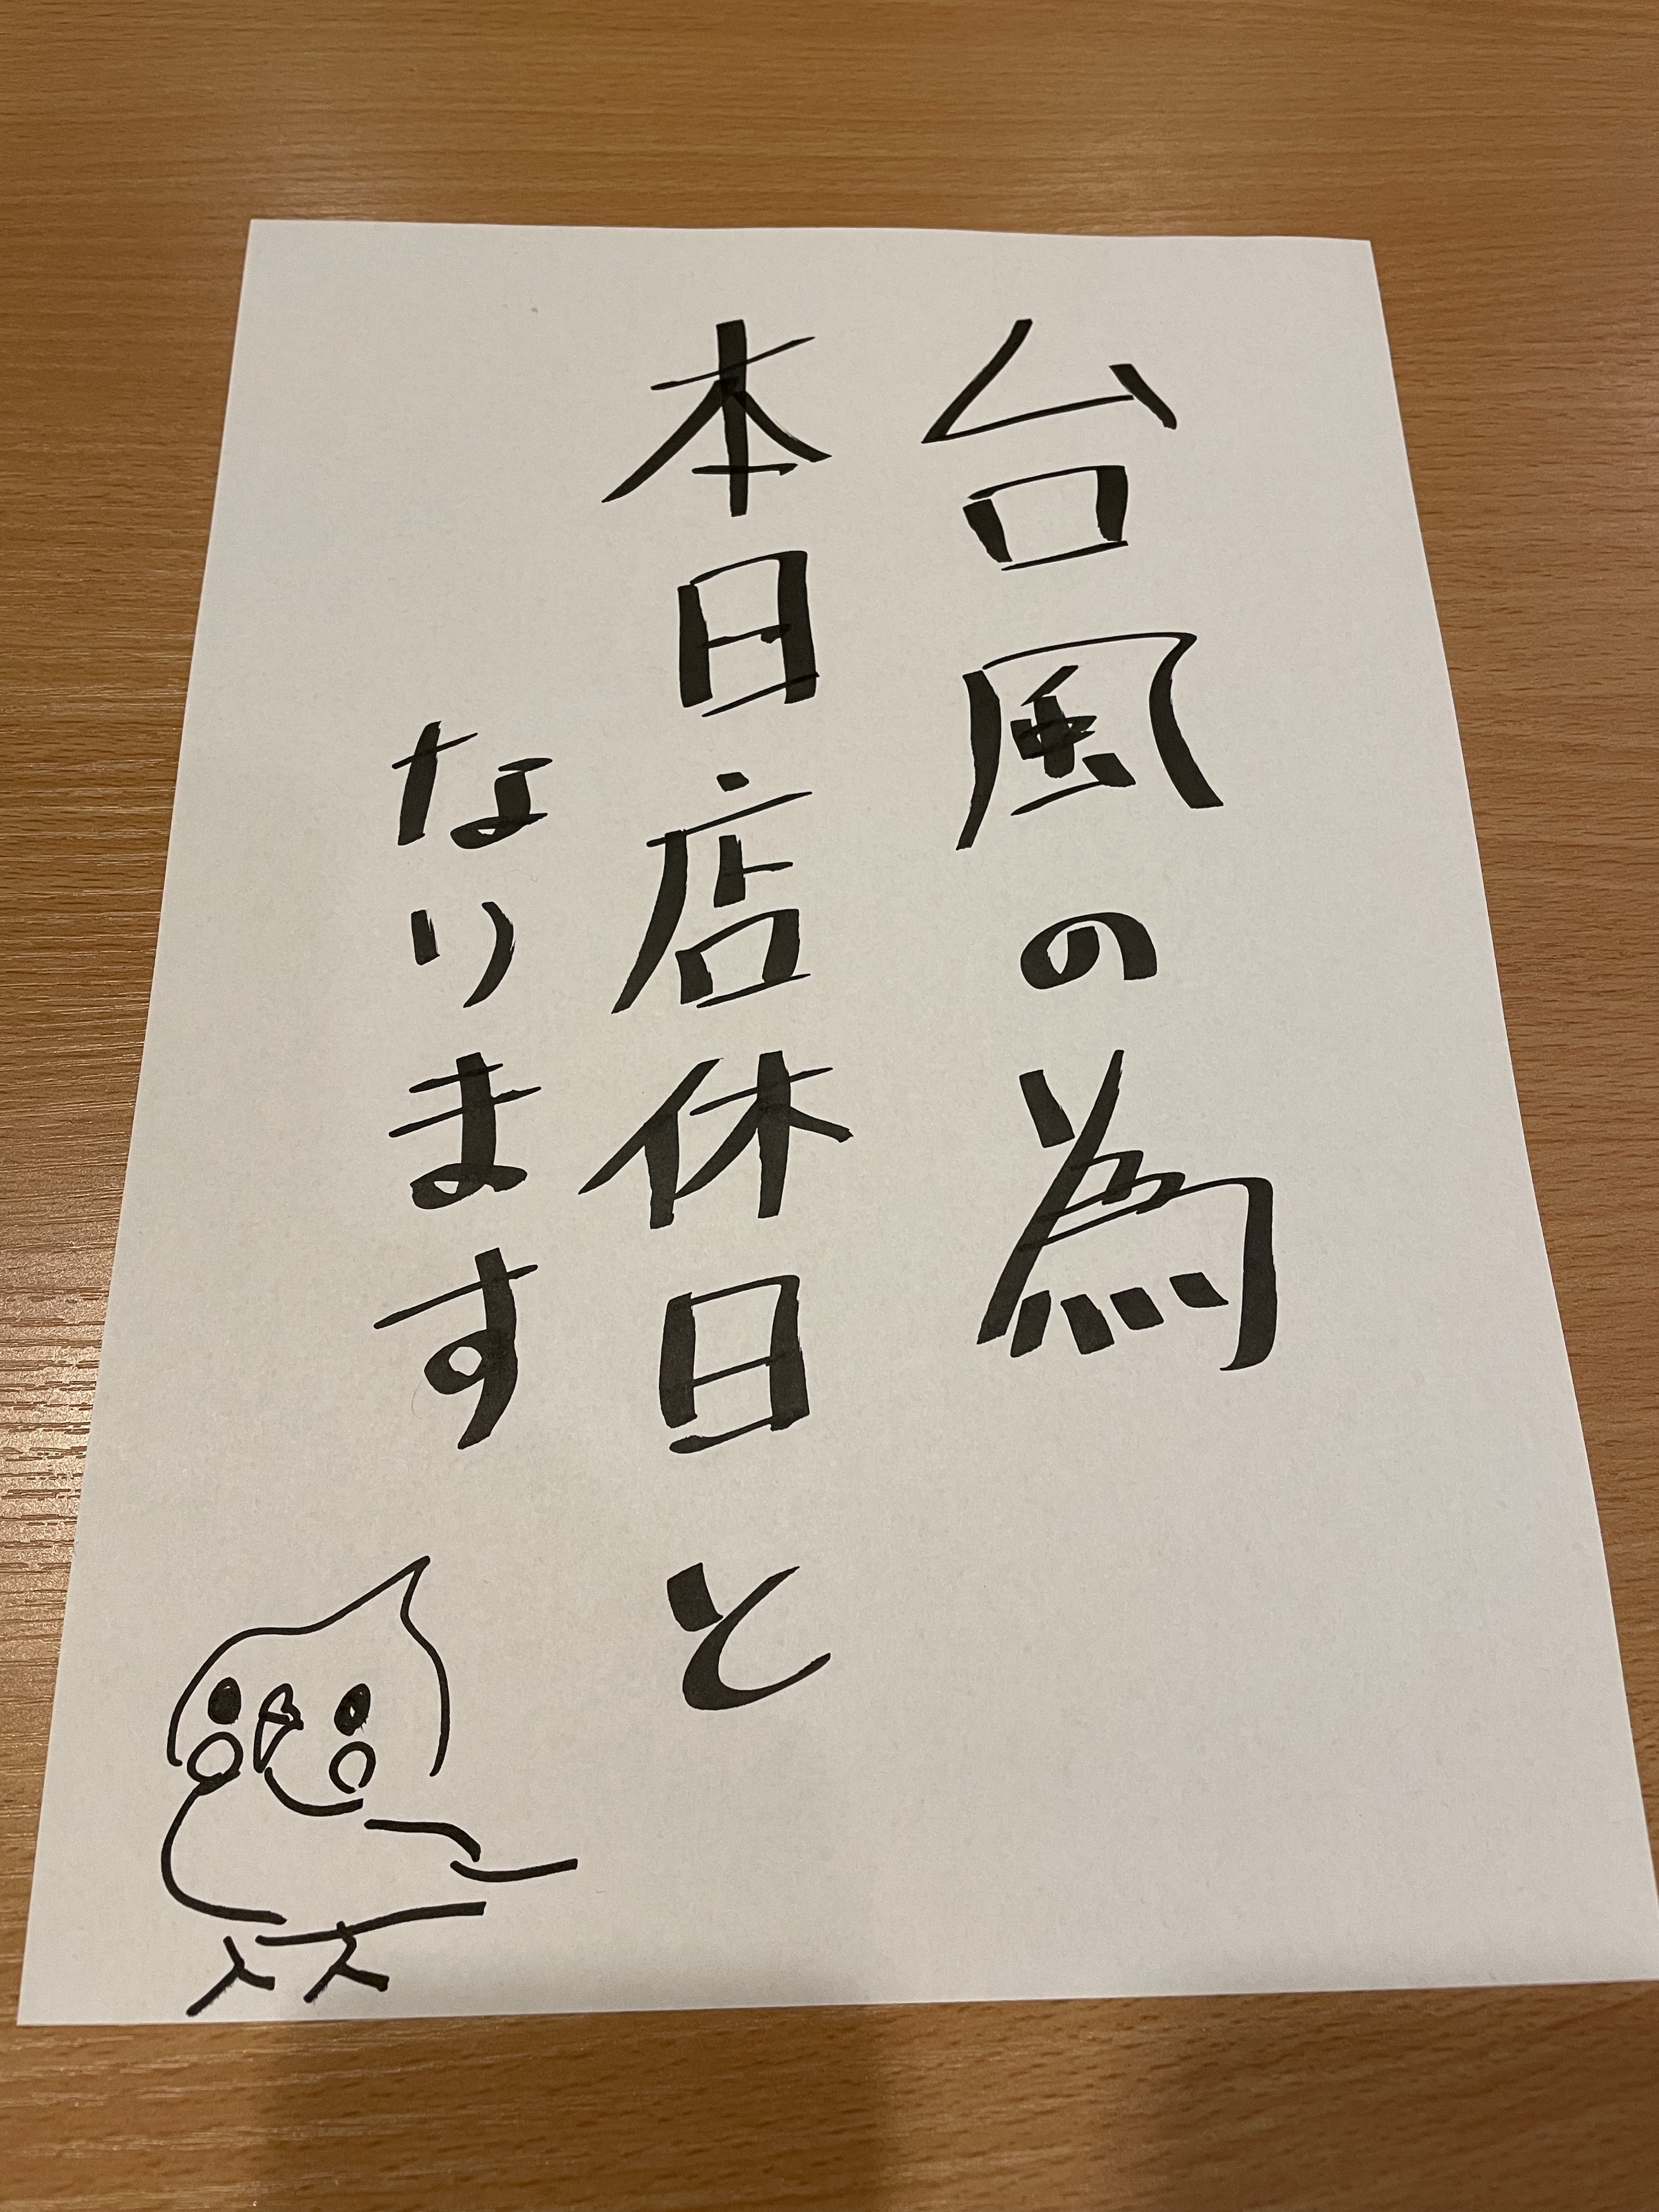 台風の為
本日店休日と
なります